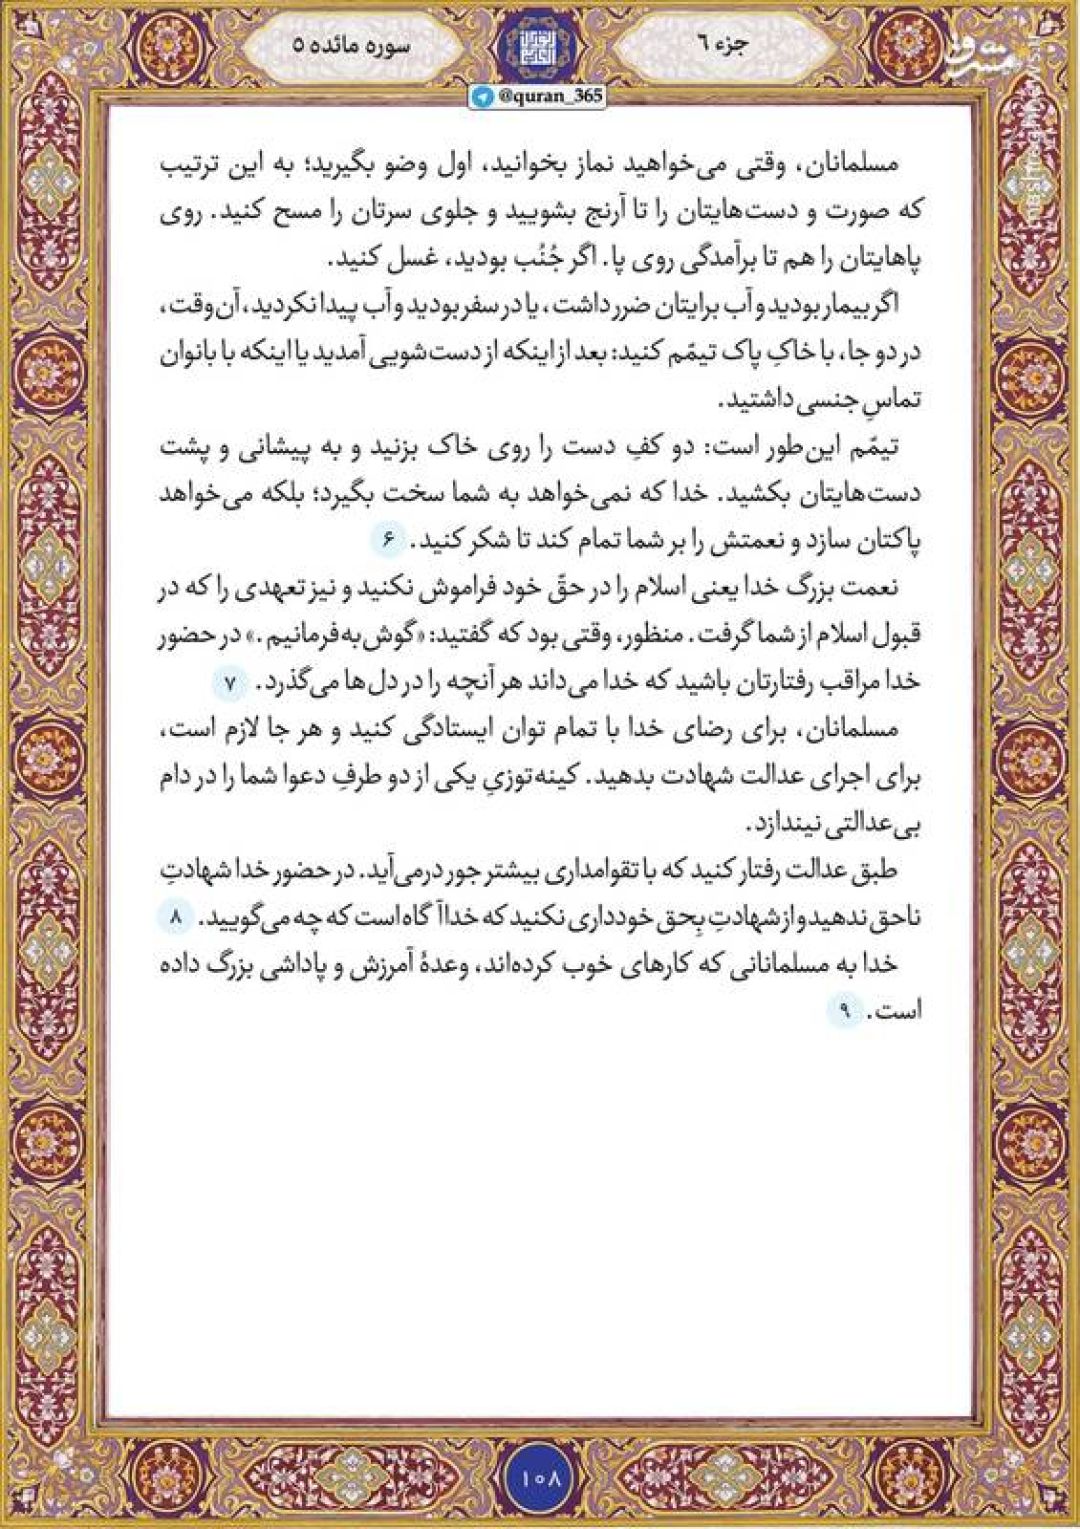 جزء ۶
سوره مائده ۵
مشرق
@quran_365
مسلمانان، وقتی می‌خواهید نماز بخوانید، اول وضو بگیرید؛ به این ترتیب
که صورت و دست‌هایتان را تا آرنج بشویید و جلوی سرتان را مسح کنید. روی
پاهایتان را هم تا برآمدگی روی پا. اگر جُنُب بودید، غسل کنید.
اگر بیمار بودید و آب برایتان ضرر داشت، یا در سفر بودید و آب پیدا نکردید، آن‌وقت،
در دو جا، با خاکِ پاک تیمّم کنید: بعد از اینکه از دست‌شویی آمدید یا اینکه با بانوان
تماسِ جنسی داشتید.
تیمّم این‌طور است: دو کفِ دست را روی خاک بزنید و به پیشانی و پشت
دست‌هایتان بکشید. خدا که نمی‌خواهد به شما سخت بگیرد؛ بلکه می‌خواهد
پاکتان سازد و نعمتش را بر شما تمام کند تا شکر کنید. ۶
نعمت بزرگ خدا یعنی اسلام را در حقّ خود فراموش نکنید و نیز تعهدی را که در
قبول اسلام از شما گرفت. منظور، وقتی بود که گفتید: «گوش‌به‌فرمانیم.» در حضور
خدا مراقب رفتارتان باشید که خدا می‌داند هر آنچه را در دل‌ها می‌گذرد. ۷
مسلمانان، برای رضای خدا با تمام توان ایستادگی کنید و هر جا لازم است،
برای اجرای عدالت شهادت بدهید. کینه‌توزیِ یکی از دو طرفِ دعوا شما را در دام
بی‌عدالتی نیندازد.
طبق عدالت رفتار کنید که با تقوامداری بیشتر جور درمی‌آید. در حضور خدا شهادتِ
ناحق ندهید و از شهادتِ بِحق خودداری نکنید که خدا آگاه است که چه می‌گویید. ۸
خدا به مسلمانانی که کارهای خوب کرده‌اند، وعدهٔ آمرزش و پاداشی بزرگ داده
است. ۹
۱۰۸